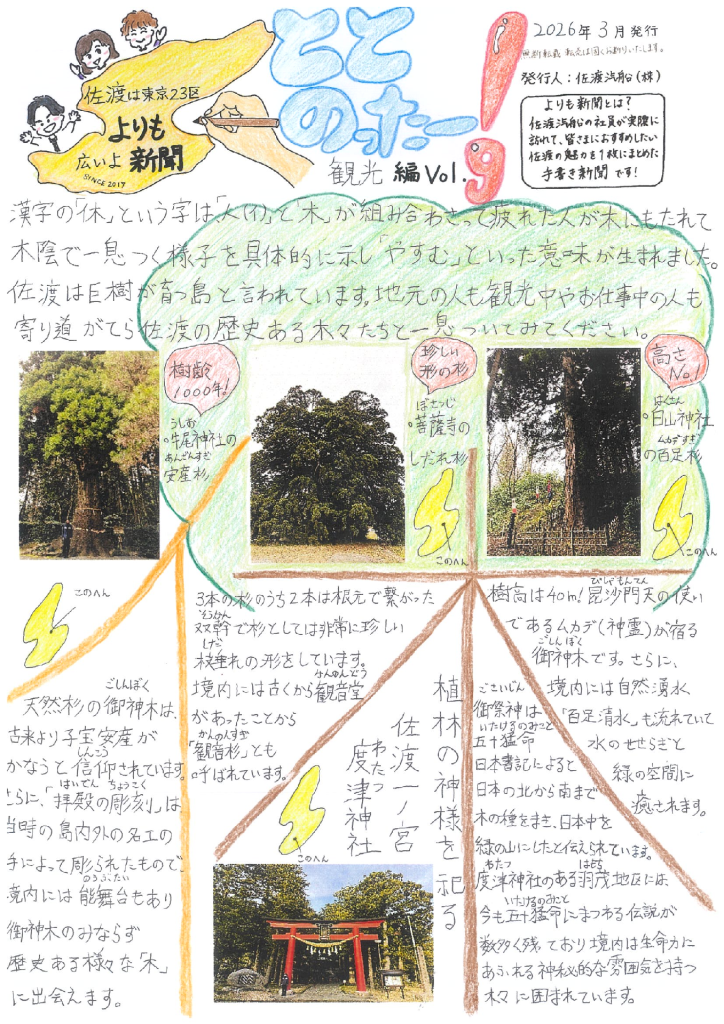 佐渡は東京23区
よりも
広いよ 新聞
SINCE 2017
とと
のったー!
観光 編 Vol.9
2026年3月発行
無断転載 転売は固くお断りいたします。
発行人：佐渡汽船(株)
よりも新聞とは?
佐渡汽船の社員が実際に
訪れて、皆さまにおすすめしたい
佐渡の魅力を1枚にまとめた
手書き新聞です!
漢字の「休」という字は「人(イ)」と「木」が組み合わさって疲れた人が木にもたれて
木陰で一息つく様子を具体的に示し「やすむ」といった意味が生まれました。
佐渡は巨樹が育つ島と言われています。地元の人も観光中やお仕事中の人も
寄り道がてら佐渡の歴史ある木々たちと一息ついてみてください。
樹齢
1000年!
うしお
牛尾神社の
あんざんすぎ
安産杉
このへん
珍しい
形の杉
ぼさつじ
菩薩寺の
しだれ杉
このへん
高さ
No.1
はくさん
白山神社
ムカデすぎ
の百足杉
このへん
ごしんぼく
天然杉の御神木は、
古来より子宝安産が
しんこう
かなうと信仰されています。
はいでん ちょうこく
さらに、「拝殿の彫刻」は
当時の島内外の名工の
手によって彫られたもので
のうぶたい
境内には能舞台もあり
御神木のみならず
歴史ある様々な「木」
に出会えます。
3本の杉のうち2本は根元で繋がった
そうかん
双幹で杉としては非常に珍しい
しだ
枝垂れの形をしています。
かんのんどう
境内には古くから観音堂
があったことから
かんのんすぎ
「観音杉」とも
呼ばれています。
びしゃもんてん
樹高は40m!毘沙門天の使い
であるムカデ(神霊)が宿る
ごしんぼく
御神木です。さらに、
境内には自然湧水
「百足清水」も流れていて
水のせせらぎと
緑の空間に
癒されます。
植林の神様を祀る
佐渡一ノ宮
わたつ
度津神社
このへん
ごさいじん
御祭神は
いたけるのみこと
五十猛命
日本書記によると
日本の北から南まで
木の種をまき、日本中を
緑の山にしたと伝えられています。
わたつ はもち
度津神社のある羽茂地区には、
いたけるのみこと
今も五十猛命にまつわる伝説が
数多く残っており境内は生命力に
あふれる神秘的な雰囲気を持つ
木々に囲まれています。